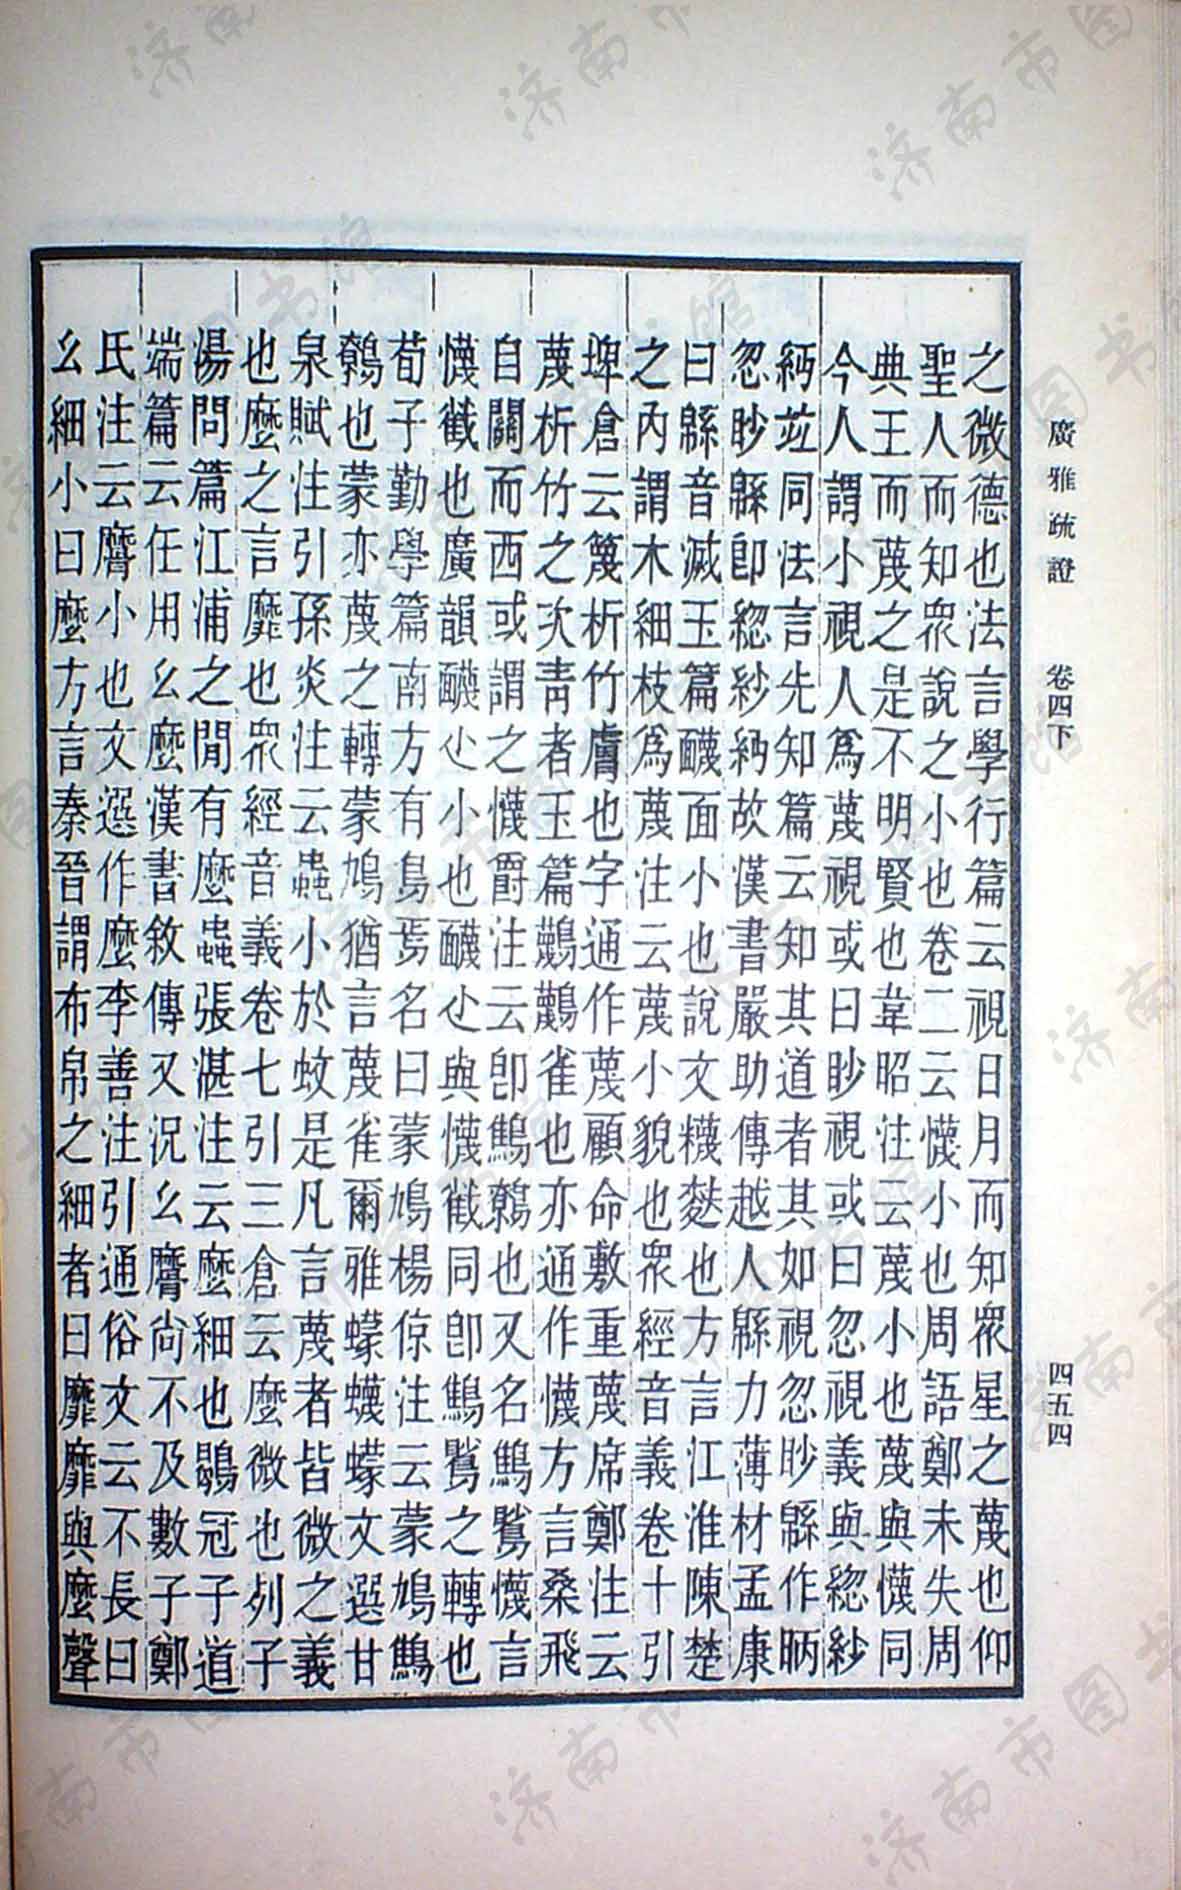 廣雅疏證　卷四下　四五四
之微德也法言學行篇云視日月而知衆星之蔑也仰
聖人而知衆說之小也卷二云懱小也周語鄭未失周
典王而蔑之是不明賢也韋昭注云蔑小也蔑與懱同
今人謂小視人爲蔑視或曰眇視或曰忽視義與緫紗
䋛竝同法言先知篇云知其道者其如視忽眇緜作昞
忽眇緜卽緫紗䋛故漢書嚴助傳越人緜力薄材孟康
曰緜音滅玉篇䩏面小也說文䊳麩也方言江淮陳楚
之內謂木細枝爲蔑注云蔑小貌也衆經音義卷十引
埤倉云篾析竹膚也字通作蔑顧命敷重蔑席鄭注云
蔑析竹之次靑者玉篇鷦鷯雀也亦通作懱方言桑飛
自關而西或謂之懱爵注云卽鷦鷯也又名鷦鸎懱言
懱𢧵也廣韻䩏尐小也䩏尐與懱𢧵同卽鷦鸎之轉也
荀子勸學篇南方有鳥焉名曰蒙鳩楊倞注云蒙鳩鷦
鷯也蒙亦蔑之轉蒙鳩猶言蔑雀爾雅蠓蠛蠓文選甘
泉賦注引孫炎注云蟲小於蚊是凡言蔑者皆微之義
也麼之言靡也衆經音義卷七引三倉云麼微也列子
湯問篇江浦之閒有麼蟲張湛注云麼細也鶡冠子道
端篇云任用幺麼漢書敘傳又況幺麿尙不及數子鄭
氏注云麿小也文選作麼李善注引通俗文云不長曰
幺細小曰麼方言秦晉謂布帛之細者曰靡靡與麼聲